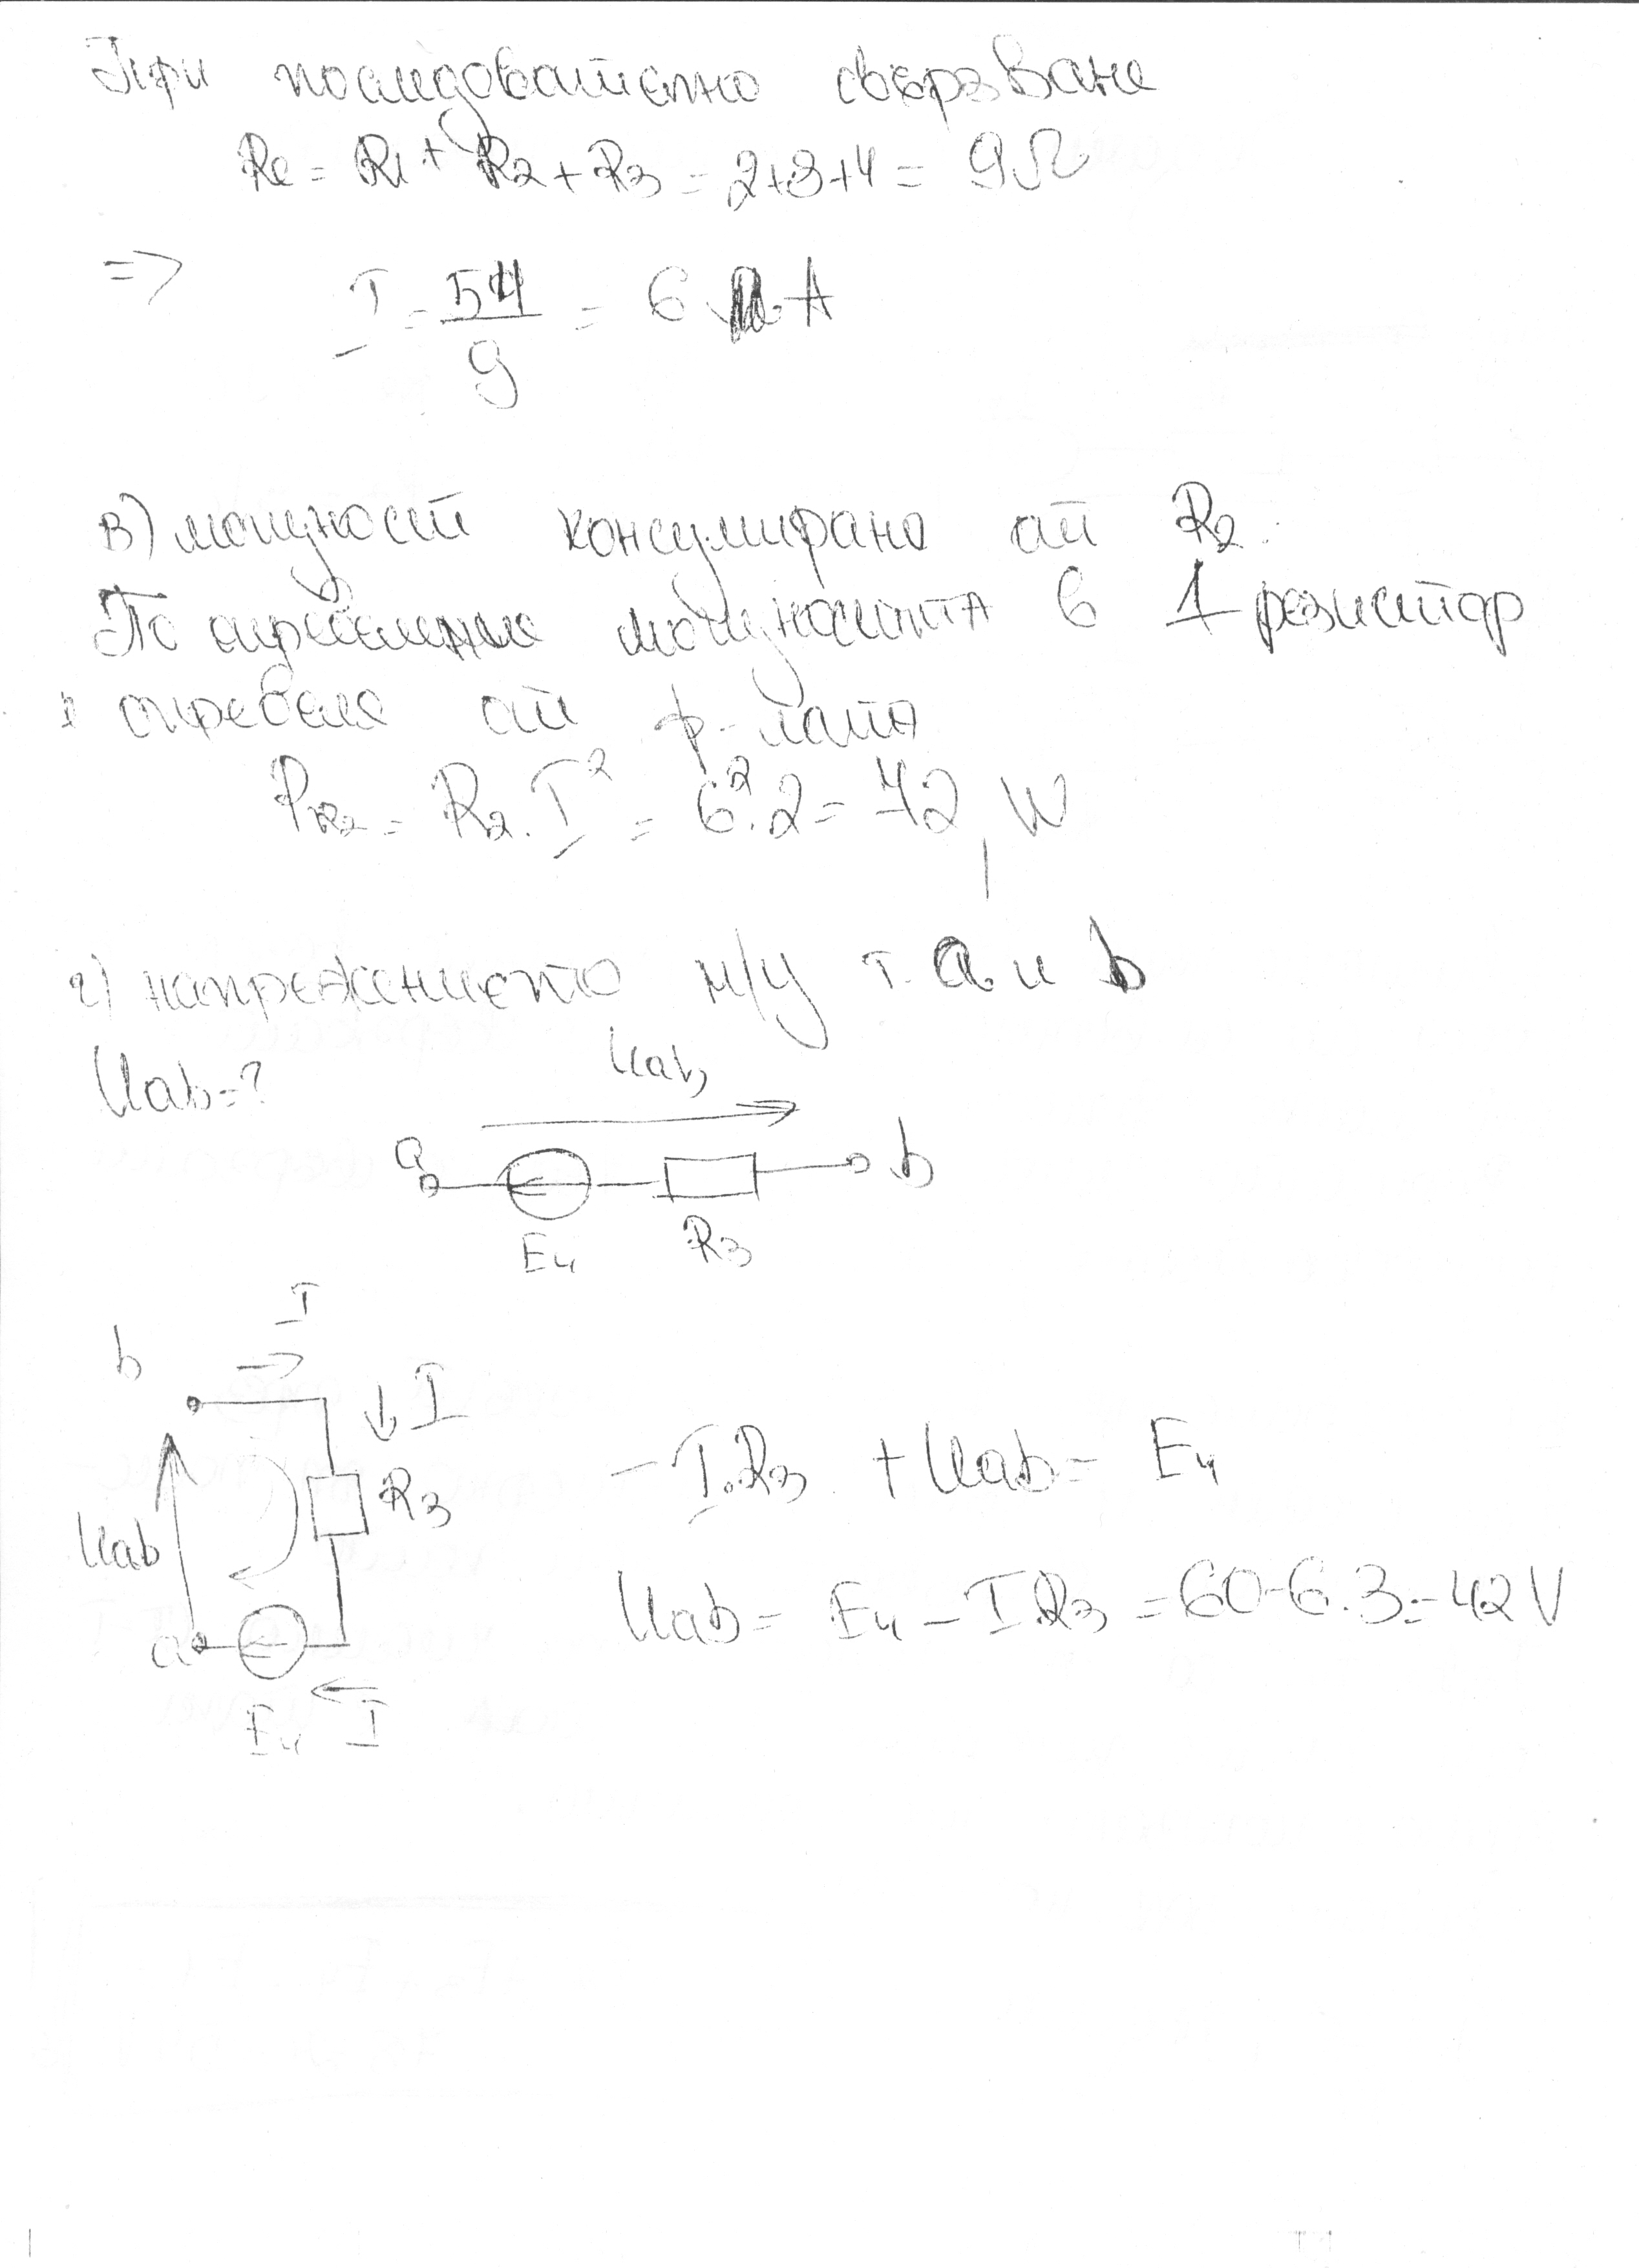 При последователно свързване
Re = R1 + R2 + R3 = 2+3+4 = 9Ω
=> I = 54/9 = 6 A
в) мощност консумирана от R2.
По определение мощността в 1 резистор
определя от ф-лата
PR2 = R2.I² = 6².2 = 72, W
г) напрежението м/у т. a и b
Uab=?
Uab
a
b
E4
R3
I
b
I
R3
Uab
a
E4
I
-I.R3 + Uab = E4
Uab = E4 - I.R3 = 60-6.3 = 42V